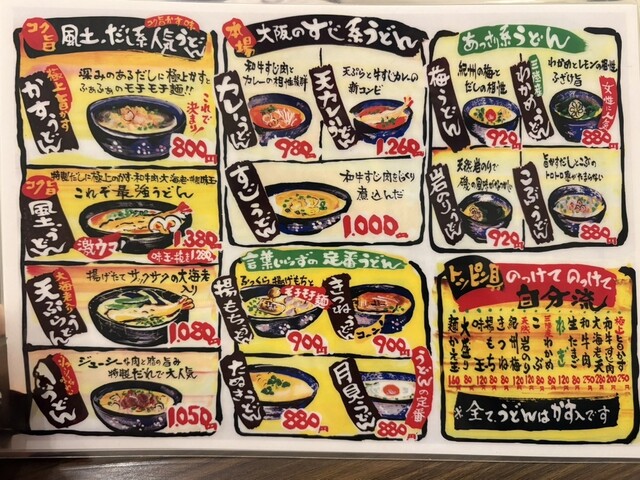 コク旨
コク旨かす味
風土。だし系人気うどん
極上旨かす
かすうどん
深みのあるだしに極上かすと
ふぁふぁのモチモチ麺!!
これで
決まり
800円
コク旨
風土うどん
これぞ最強うどん
激ウマ
1,380円
味玉抜き1,280円
大海老入り
天ぷらうどん
揚げたてサクサクの大海老
1,080円
肉うどん
ジューシーな肉と豚の旨み
特製だれで大人気
1,050円
本場
大阪のすじ系うどん
カレーうどん
和牛すじ肉と
カレーの相性抜群
980円
天カレうどん
天ぷらと牛すじカレーの
新コンビ
1,260円
すじうどん
和牛すじ肉をじっくり
煮込んだ
1,000円
言葉いらずの定番うどん
揚もちうどん
ふっくら揚げもちと
モチモチ麺
900円
きつねうどん
900円
たぬきうどん
880円
月見うどん
うどんの定番
880円
あっさり系うどん
梅うどん
紀州の梅と
だしの相性
920円
三陸産
わかめうどん
わかめとレモンの相性
ふさぎ旨
女性に人気
880円
岩のりうどん
天然岩のりで
磯の風味がたまらない
920円
こぶうどん
旨かすだしとこぶの
トロトロ具が作まらない
880円
トッピン具
のっけてのっけて
自分流
極上旨かす 250
和牛すじ肉 280
大海老天 250
和牛肉 200
生たまご 80
ねぎ 80
三陸わかめ 80
こぶ 80
天然岩のり 120
紀州梅 120
きつね 120
揚もち 120
味玉 100
大盛り 80
麺かえ玉 160
※全て、うどんはかす入です